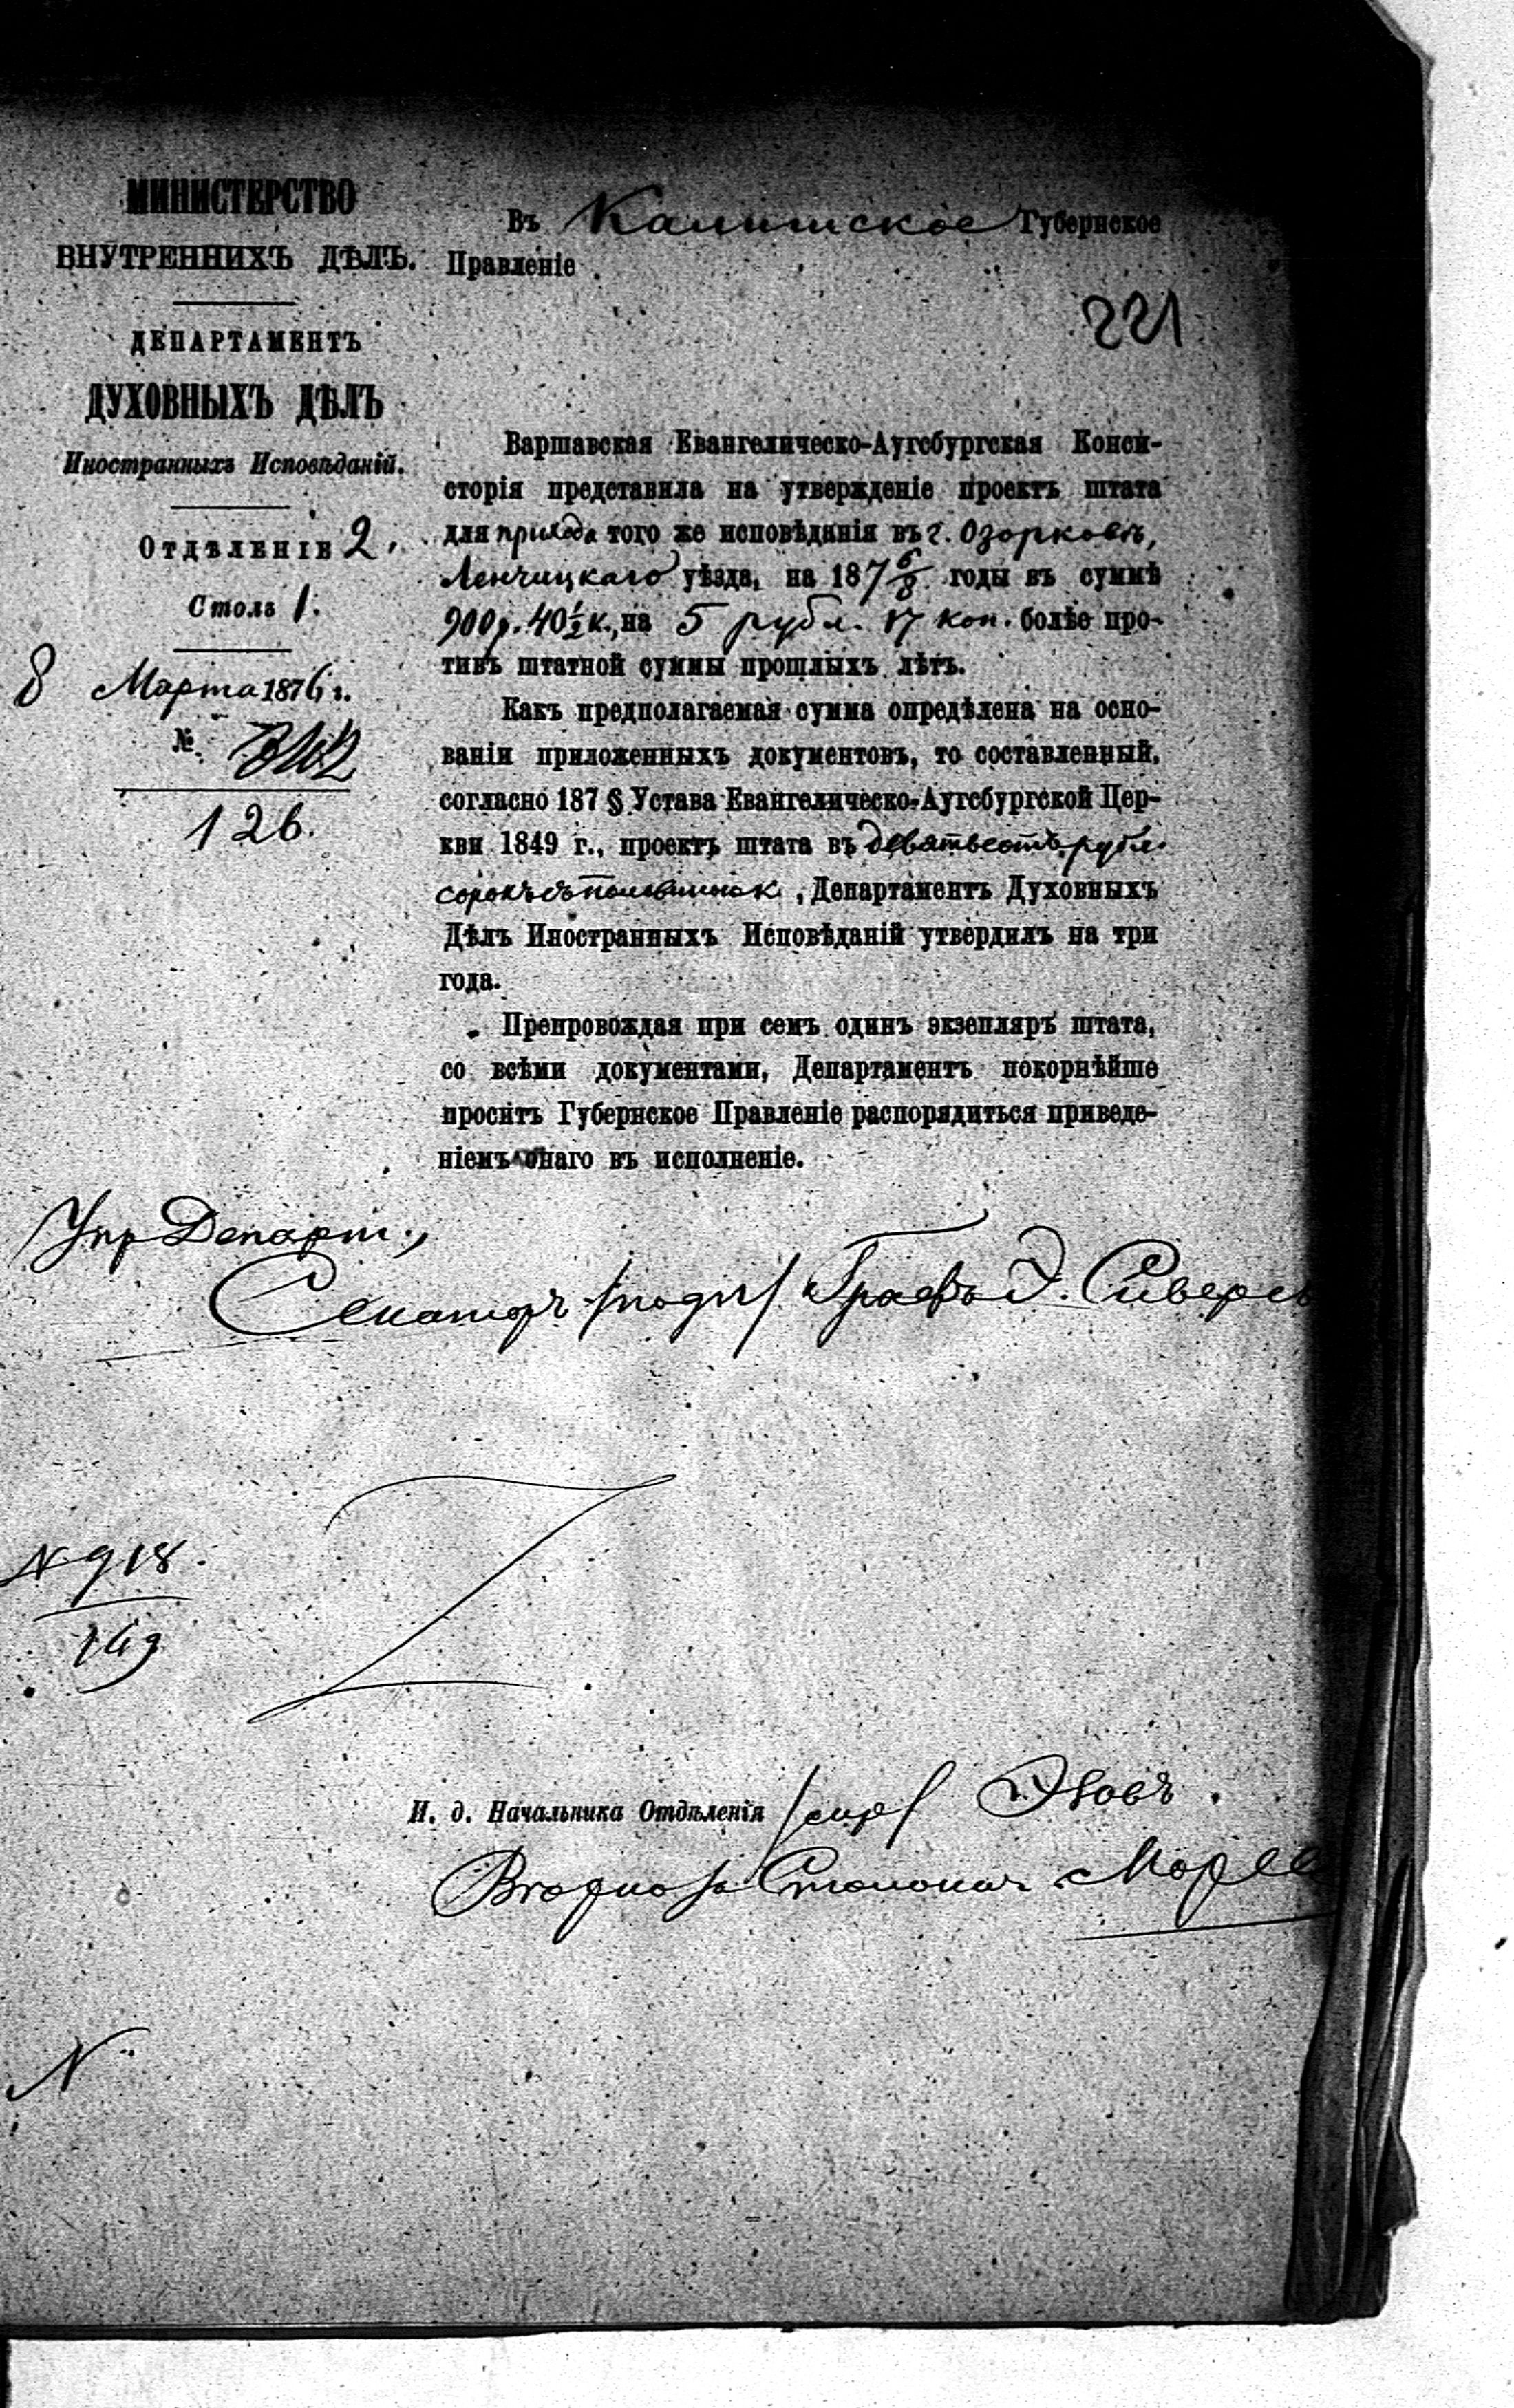 МИНИСТЕРСТВО
ВНУТРЕННИХЪ ДѢЛЪ.
ДЕПАРТАМЕНТЪ
ДУХОВНЫХЪ ДѢЛЪ
Иностранныхъ Исповѣданій.
Отдѣленіе 2.
Столъ 1.
8 Марта 1876 г.
№
126.
Въ Калишское Губернское
Правленіе
221
Варшавская Евангелическо-Аугсбургская Конси-
сторія представила на утвержденіе проектъ штата
для прихода того же исповѣданія въ г. Озорковѣ,
Ленчицкаго уѣзда, на 187 6/8 годы въ суммѣ
900 р. 40 1/2 к., на 5 рубл. 17 коп. болѣе про-
тивъ штатной суммы прошлыхъ лѣтъ.
Какъ предполагаемая сумма опредѣлена на осно-
ваніи приложенныхъ документовъ, то составленный,
согласно 187 § Устава Евангелическо-Аугсбургской Цер-
кви 1849 г., проектъ штата въ девятьсотъ рубл.
сорокъ съ половиною к., Департаментъ Духовныхъ
Дѣлъ Иностранныхъ Исповѣданій утвердилъ на три
года.
Препровождая при семъ одинъ экзепляръ штата,
со всѣми документами, Департаментъ покорнѣйше
проситъ Губернское Правленіе распорядиться приведе-
ніемъ онаго въ исполненіе.
Упр Департ.,
Сенаторъ /подп/ Графъ Э. Сиверсъ
N 918.
149
И. д. Начальника Отдѣленія /скрѣп/ Эзовъ.
Вѣрно за Столонач.
N